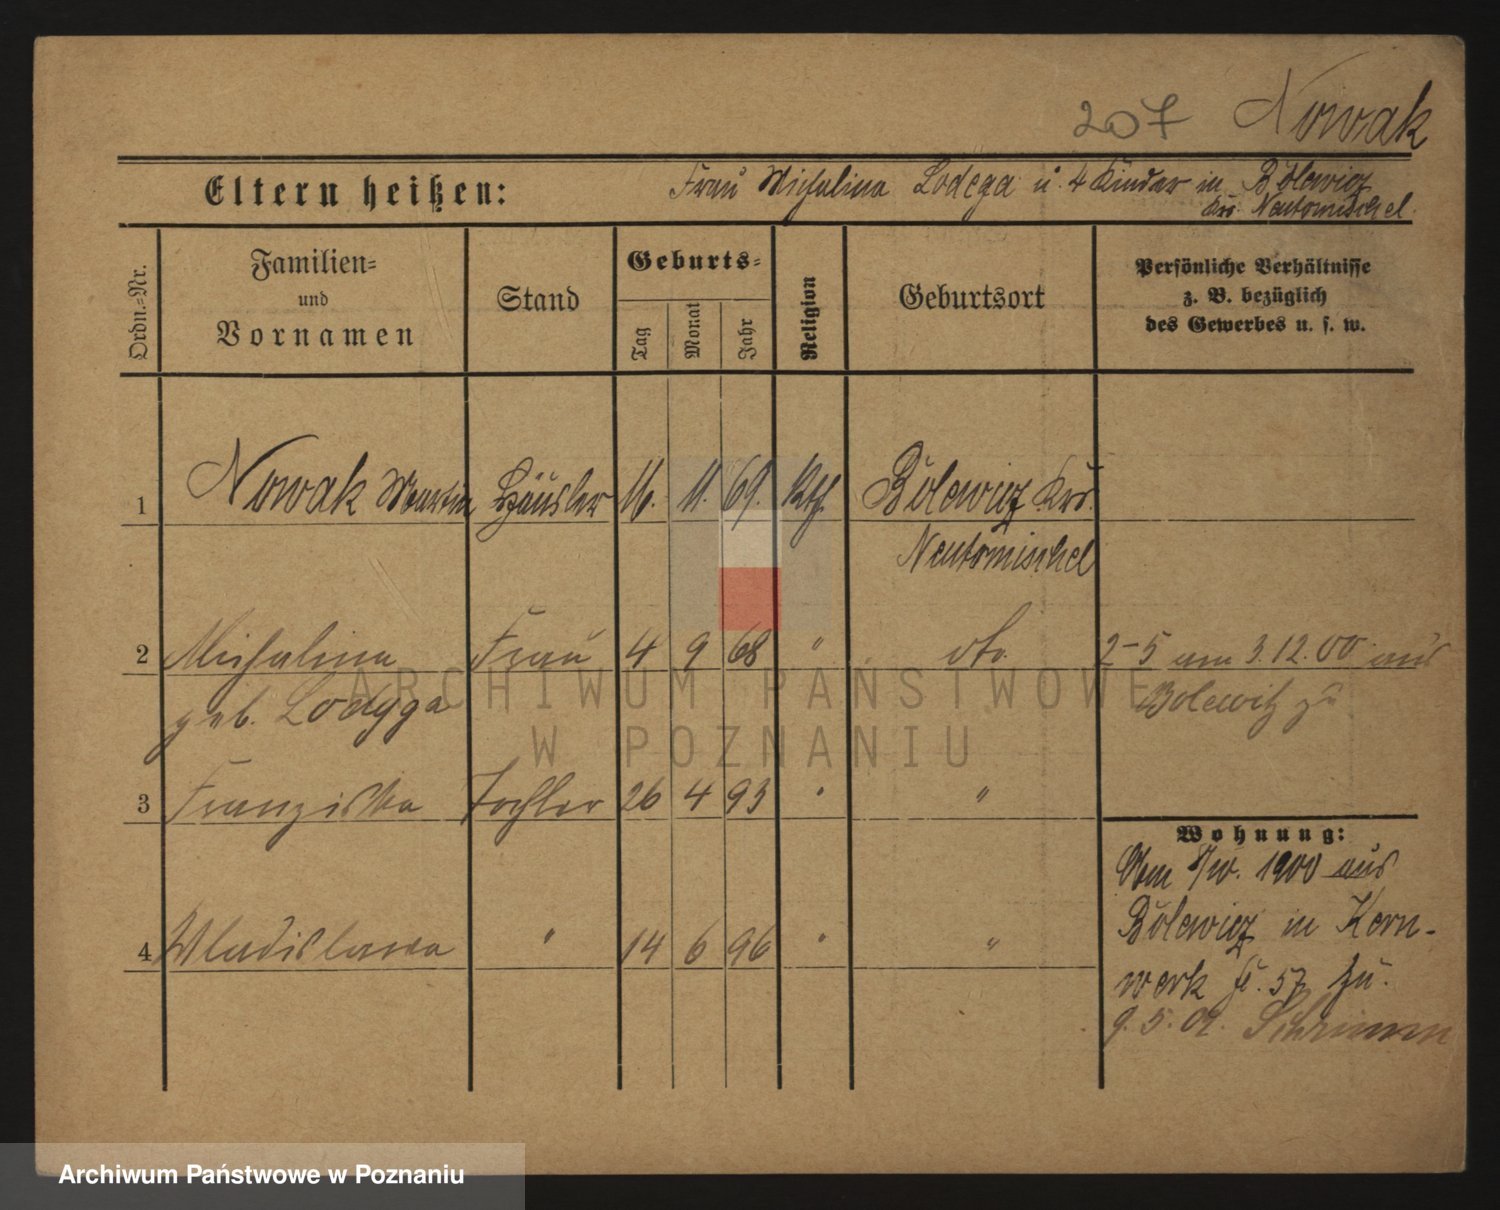 207 Nowak
Eltern heißen: Frau Michalina Lodega u. 4 Kinder in Bolewicz
Krs. Neutomischel.
Ordn.=Nr.
Familien=
und
Vornamen
Stand
Geburts=
Tag
Monat
Jahr
Religion
Geburtsort
Persönliche Verhältnisse
z. B. bezüglich
des Gewerbes u. s. w.
1 Nowak Martin Häusler 16. 11. 69. Kth. Bolewicz Krs.
Neutomischel
2 Michalina Frau 4 9 68 " dto. 2-5 am 3.12.00 aus
geb. Lodyga Bolewitz zu
3 Franziska Tochter 26 4 93 " "
4 Wladislawa " 14 6 96 " "
Wohnung:
1900 aus
Bolewicz in Kern-
werk 57 zu.
9.5.01. Schrimm
ARCHIWUM PAŃSTWOWE
W POZNANIU
Archiwum Państwowe w Poznaniu